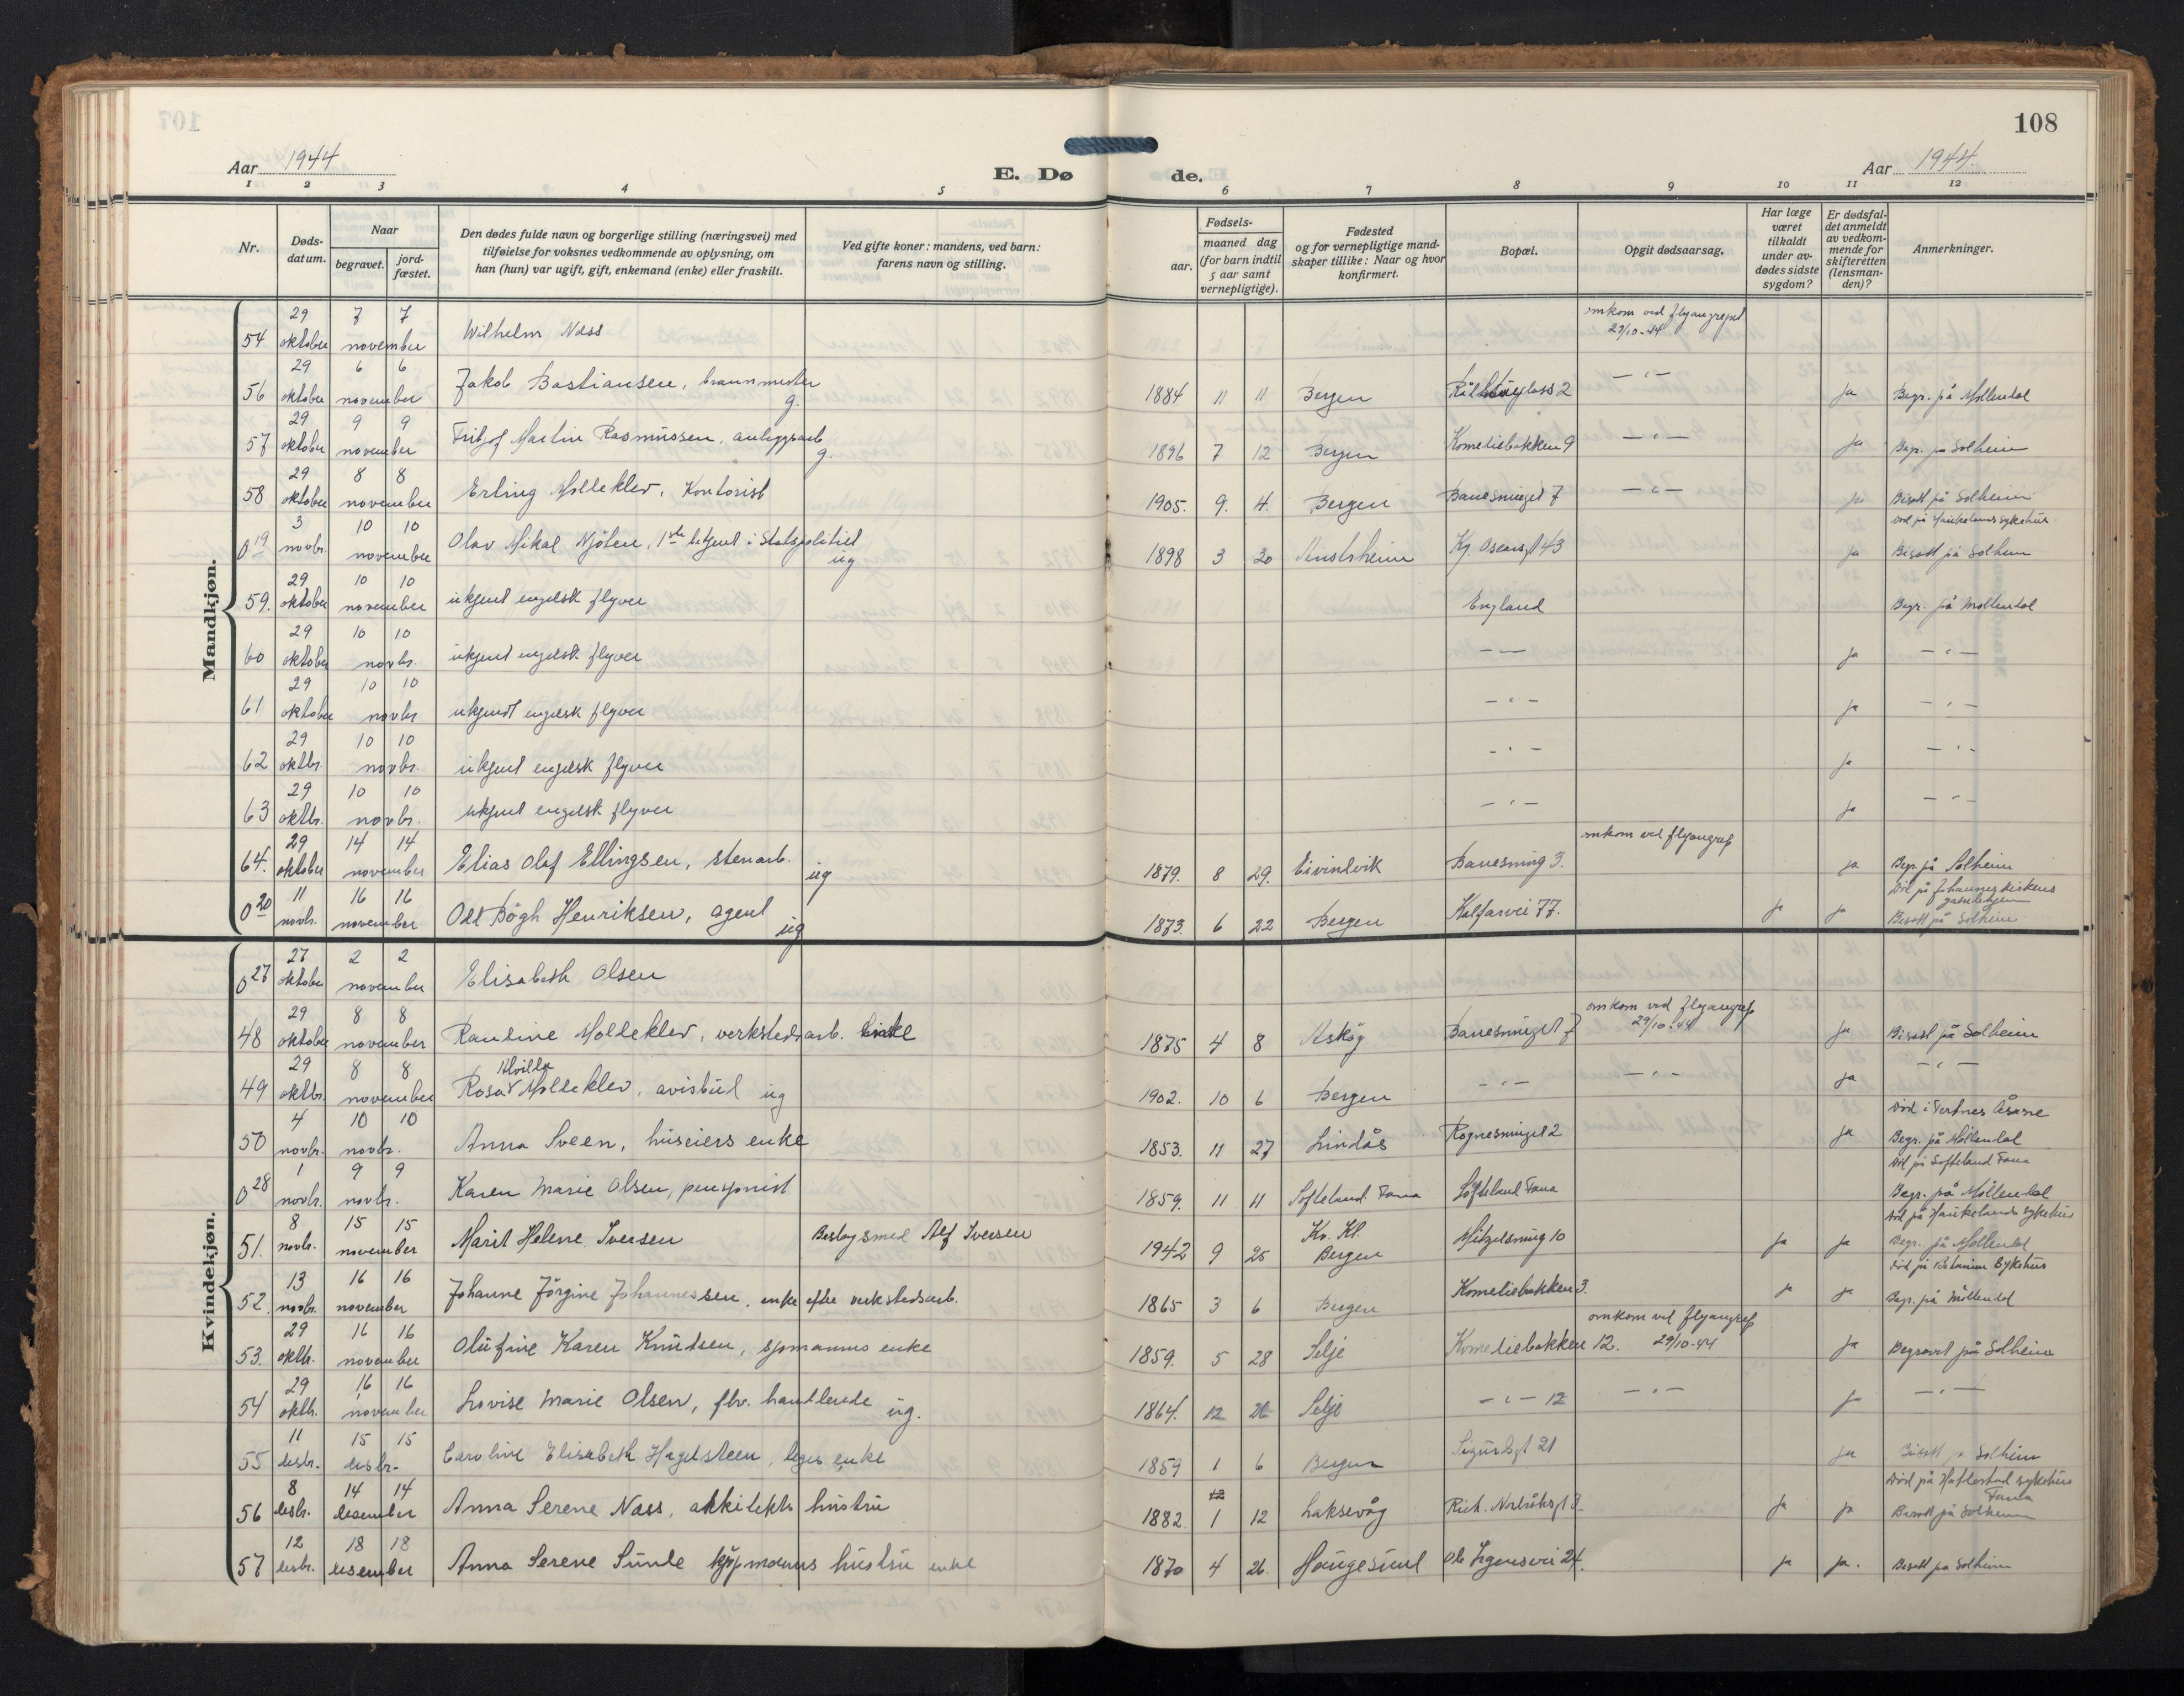 107
108
Aar 1944
E. Dø
de.
Aar 1944.
1 2 3 4 5 6 7 8 9 10 11 12
Nr.
Døds-datum.
Naar
begravet.
jord-fæstet.
Den dødes fulde navn og borgerlige stilling (næringsvei) med
tilføielse for voksnes vedkommende av oplysning, om
han (hun) var ugift, gift, enkemand (enke) eller fraskilt.
Ved gifte koner: mandens, ved barn:
farens navn og stilling.
Fødsels-
aar.
maaned dag
(for barn indtil
5 aar samt
vernepligtige).
Fødested
og for vernepligtige mand-
skaper tillike: Naar og hvor
konfirmert.
Bopæl.
Opgit dødsaarsag.
Har læge
været
tilkaldt
under av-
dødes sidste
sygdom?
Er dødsfal-
det anmeldt
av vedkom-
mende for
skifteretten
(lensman-
den)?
Anmerkninger.
Mandkjøn.
54 29 oktober 7 7 november Wilhelm Næss omkom ved flyangrepet 29/10-44
56 29 oktober 6 6 november Jakob Bastiansen, brannmester g. 1884 11 11 Bergen 2 — " — ja Begr. på Möllendal
57 29 oktober 9 9 november Fritjof Martin Rasmussen, anleggsarb. g. 1896 7 12 Bergen Komediebakken 9 — " — ja Begr. på Solheim
58 29 oktober 8 8 november Erling Molleklev, Kontorist 1905. 9. 4. Bergen Banesmuget 7 — " — ja Bisatt på Solheim
0 19 3 novbr. 10 10 november Olav Mikal Njöten, 1ste betjent i Statspolitiet ug 1898 3 20 Austrheim Kg. Oscarsgt 43 ja Död på Haukelands sykehus Bisatt på Solheim
59. 29 oktober 10 10 november ukjent engelsk flyver England Begr. på Möllendal
60 29 oktober 10 10 novbr. ukjent engelsk flyver — — ja — " —
61 29 oktober 10 10 novbr ukjendt engelsk flyver — " — ja — " —
62 29 oktbr. 10 10 novbr. ukjent engelsk flyver — " — ja — " —
63 29 oktbr. 10 10 novbr. ukjent engelsk flyver — " — ja — " —
64. 29 oktober 14 14 november Elias Olaf Ellingsen, stenarb. ug 1879. 8 29. Eivindvik Banesmug 3. omkom ved flyangrep ja Begr. på Solheim
0 20 11 novbr. 16 16 november Odd Bögh Henriksen, agent ug 1873. 6 22 Bergen Kalfarvei 77. ja ja Död på Johanneskirkens gamlehjem Bisatt på Solheim
Kvindekjøn.
0 27 27 oktober 2 2 november Elisabeth Olsen
48 29 oktober 8 8 november Pauline Molleklev, verkstedsarb. Enke 1875 4 8 Askøy Banesmuget 7 omkom ved flyangrep 29/10-44 ja Bisatt på Solheim
49 29 oktbr. 8 8 november Rosa Alvilda Molleklev, avisbud ug 1902. 10 6 Bergen — " — — " — ja — " —
50 4 novbr. 10 10 novbr. Anna Sveen, huseiers enke 1853. 11 27 Lindås Rognesmuget 2 ja Död i Tertnes Åsane Begr. på Möllendal
0 28 1 novbr. 9 9 novbr. Karen Marie Olsen, pensjonist 1859. 11 11 Söfteland Fana Söfteland Fana Död på Söfteland Fana Begr. på Möllendal
51. 8 novbr. 15 15 november Marit Helene Iversen Beslagsmed Alf Iversen 1942 9 25 Kv. Kl. Bergen Mitzelsmug 10 ja ja Död på Haukelands sykehus Begr. på Möllendal
52. 13 novbr. 16 16 november Johanne Jörgine Johannessen, enke efter verkstedsarb. 1865 3 6 Bergen Komediebakken 3. ja ja Död på Betanien Sykehus Begr. på Möllendal
53. 29 oktbr. 16 16 november Olufine Karen Knutsen, sjomanns enke 1859. 5 28 Selje Komediebakken 12. omkom ved flyangrep 29/10-44 ja Begravet på Solheim
54 29 oktbr. 16 16 november Lovise Marie Olsen, fhv. handlende ug. 1864. 12 26 Selje — " — 12 — " — ja — " —
55 11 desbr. 15 15 desbr. Caroline Elisabeth Hagelsteen, leges enke 1859 1 6 Bergen Sigurdsgt 21 ja Bisatt på Solheim
56 8 desbr. 14 14 desember Anna Serene Næss, arkitekts hustru 1882. 12 1 12 Laksevåg Rich. Nordråksgt 3 ja ja Död på Haflestad sykehus Fana Bisatt på Solheim
57 12 desbr. 18 18 desember Anna Serene Sunde kjöpmanns hustru enke 1870 4 26. Haugesund Ole Irgensvei 24. ja ja. Bisatt på Solheim